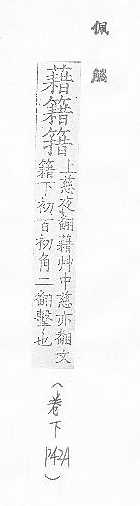 佩觿
藉籍籍
上慈夜翻藉艸中慈亦翻文
籍下初百初角二翻鑿也
（卷下142A）